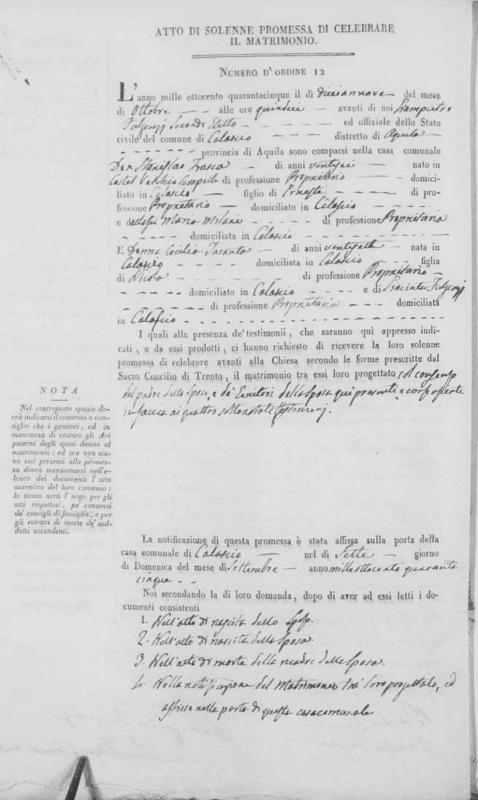 ATTO DI SOLENNE PROMESSA DI CELEBRARE
IL MATRIMONIO.
NUMERO D'ORDINE 12
L'anno mille ottocento quarantacinque il dì diciannove del mese
di Ottobre alle ore quindici avanti di noi Giampietro
ed uffiziale dello Stato
civile del comune di Calascio distretto di Aquila
provincia di Aquila sono comparsi nella casa comunale
Don Stanislao Frasca di anni ventisei nato in
Castel Vecchio di professione Proprietario domici-
liato in Calascio figlio di Ernesto di pro-
fessione Proprietario domiciliato in Calascio
e della fu Maria Milani di professione Proprietaria
domiciliata in Calascio
E Donna Cecilia Taranta di anni nata in
Calascio domiciliata in Calascio figlia
di Nicola di professione Proprietario
domiciliato in Calascio e di Giacinta
di professione Proprietaria domiciliata
in Calascio
I quali alla presenza de'testimonii, che saranno quì appresso indi-
cati, e da essi prodotti, ci hanno richiesto di ricevere la loro solenne
promessa di celebrare avanti alla Chiesa secondo le forme prescritte dal
Sacro Concilio di Trento, il matrimonio tra essi loro progettato col consenso
del padre dello Sposo, e de' Genitori della Sposa qui presenti e
in faccia ai quattro testimonj.
NOTA
Nel contraposto spazio do-
vrà indicarsi il consenso o con-
siglio che i genitori, ed in
mancanza di costoro gli Avi
paterni degli sposi danno al
matrimonio: ed ove non sia-
no essi presenti alla promes-
sa dovrà menzionarsi nell'e-
lenco dei documenti l'atto
autentico del loro consenso:
lo stesso avrà l'uogo per gli
atti rispettosi, pe' consensi
de' consigli di famiglia, e per
gli estratti di morte de' sud-
detti ascendenti.
La notificazione di questa promessa è stata affissa sulla porta della
casa comunale di Calascio nel dì Sette giorno
di Domenica del mese di Settembre anno mille ottocento quaranta
cinque
Noi secondando la di loro domanda, dopo di aver ad essi letti i do-
cumenti consistenti
1. Nell'atto di nascita dello Sposo.
2. Nell'atto di nascita della Sposa.
3. Nell'atto di morte della madre dello Sposo.
4. Nella notificazione del Matrimonio tra loro progettato, ed
affissa nella porta di questa casa comunale